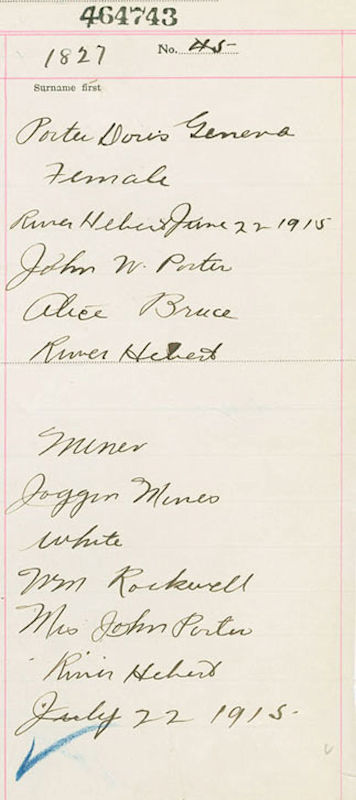 464743
1827 No. 45
Surname first
Porter Doris Geneva
Female
River Hebert June 22 1915
John W. Porter
Alice Bruce
River Hebert
Miner
Joggin Mines
White
Wm Rockwell
Mrs John Porter
River Hebert
July 22 1915.